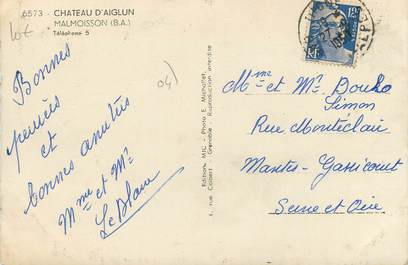 6573 - CHATEAU D'AIGLUN
MALMOISSON (B.A.)
Téléphone 5
10€
04)
Bonnes
pensées
et
bonnes amitiés
Mme et Mr
Le Blanc
Editions MIC - Photo E. Michallet,
1, rue Colbert - Grenoble - Reproduction interdite
12F
RF
Mme et Mr. Bouho
Simon
Rue Montéclair
Mantes-Gassicourt
Seine et Oise